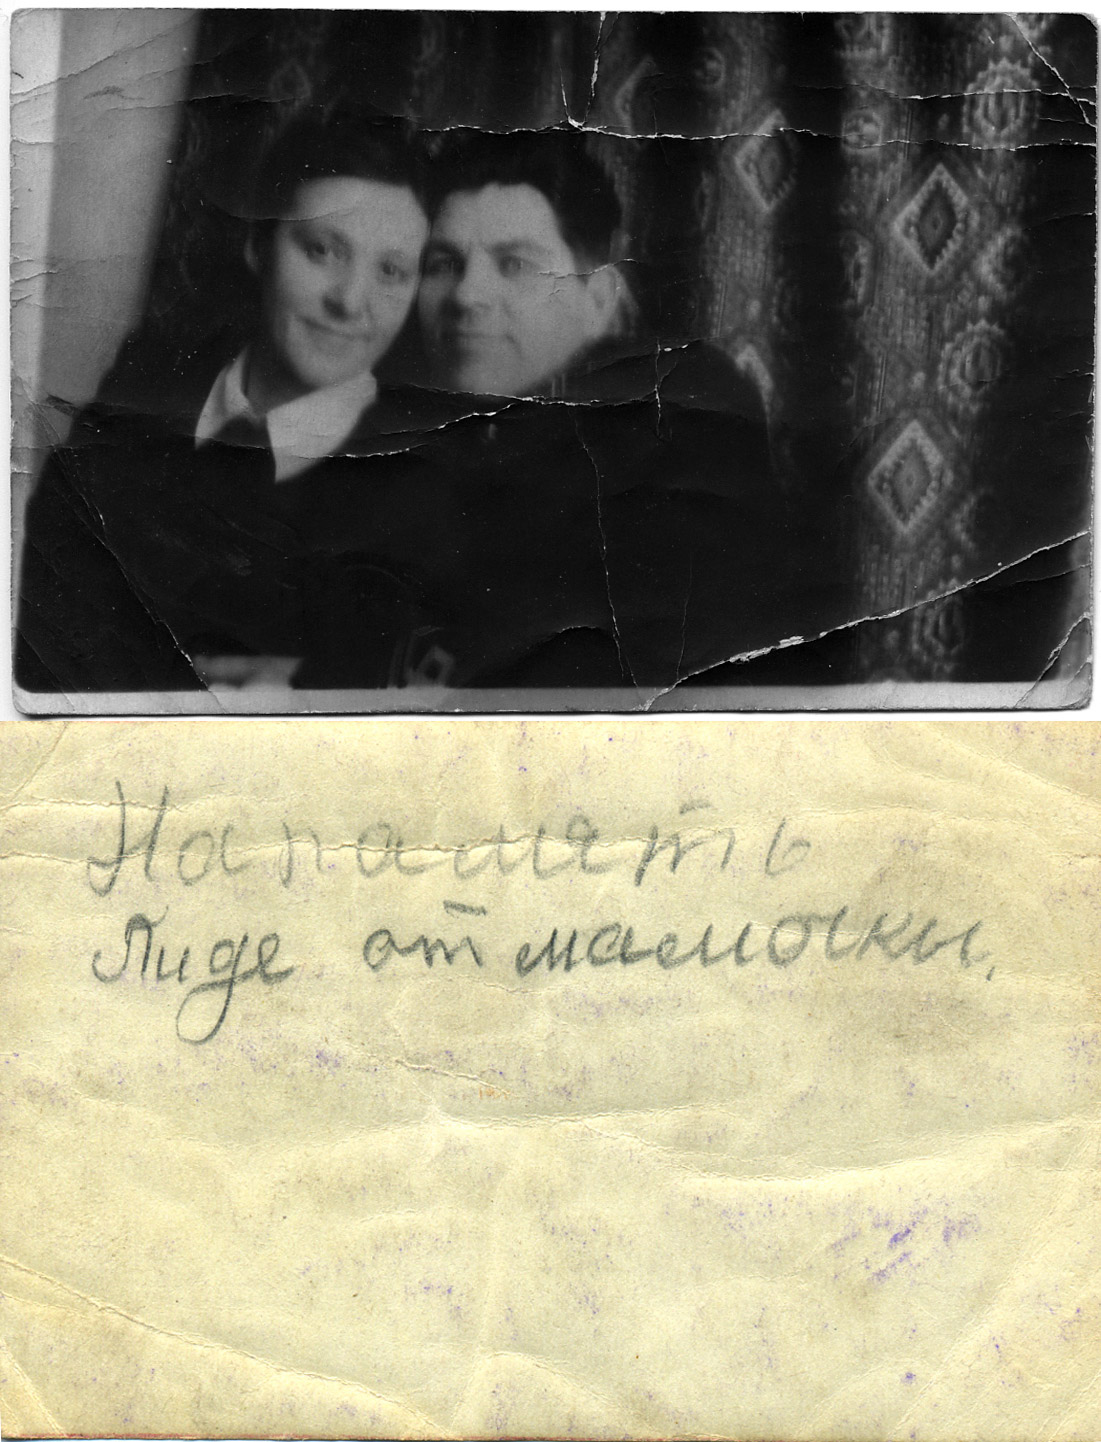 На память
Лиде от мамочки.